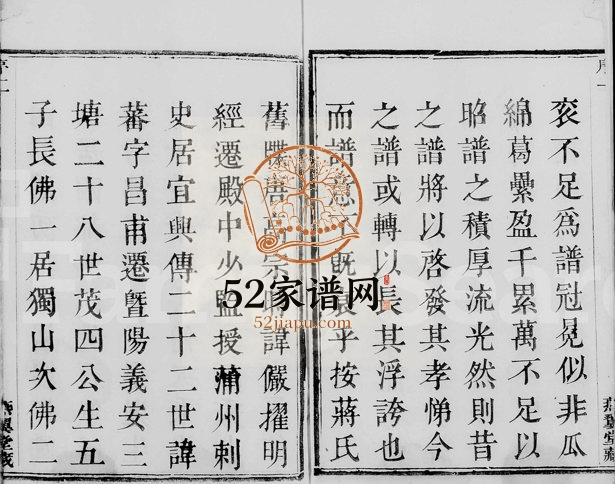 序一
衮不足為譜冠冕似非瓜
綿葛纍盈千累萬不足以
昭譜之積厚流光然則昔
之譜將以啓發其孝悌今
之譜或轉以長其浮誇也
而譜意不既乎按蔣氏
舊宗諱儼擢明
經遷殿中少監授蒲州刺
史居宜興傳二十二世諱
蕃字昌甫遷暨陽義安三
塘二十八世茂四公生五
子長佛一居獨山次佛二
序二
52家谱网
52jiapu.com